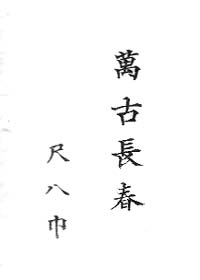 萬古長春
尺八巾